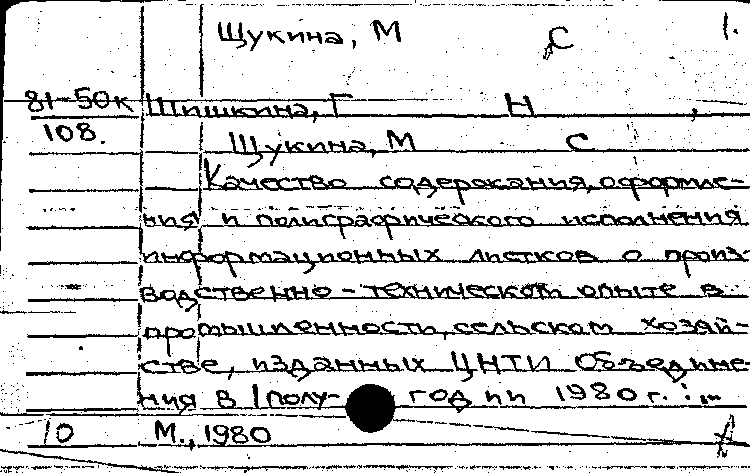 Щукина, М С 1.
81-50к Шишкина, Г Н ,
108. Щукина, М С
Качество содержания, оформле-
ния и полиграфического исполнения
информационных листков о произ-
водственно-техническом опыте в
промышленности, сельском хозяй-
стве, изданных ЦНТИ Объедине-
ния в I полу- годии 1980 г. :
10 М., 1980